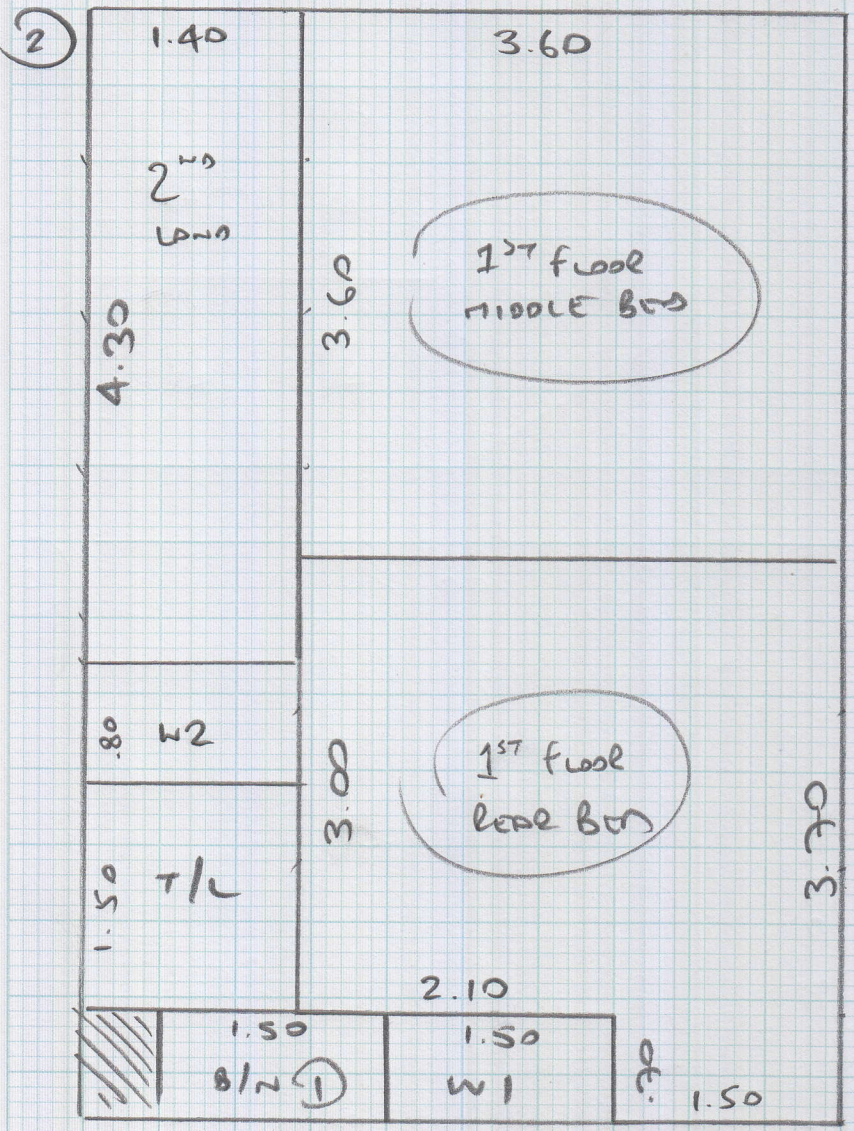 2
1.40
3.60
2ND
LAND
4.30
3.60
1ST FLOOR
MIDDLE BED
.80
W2
3.00
1ST FLOOR
REAR BED
3.70
1.50
T/L
2.10
1.50
1.50
B/N 1
W1
.70
1.50